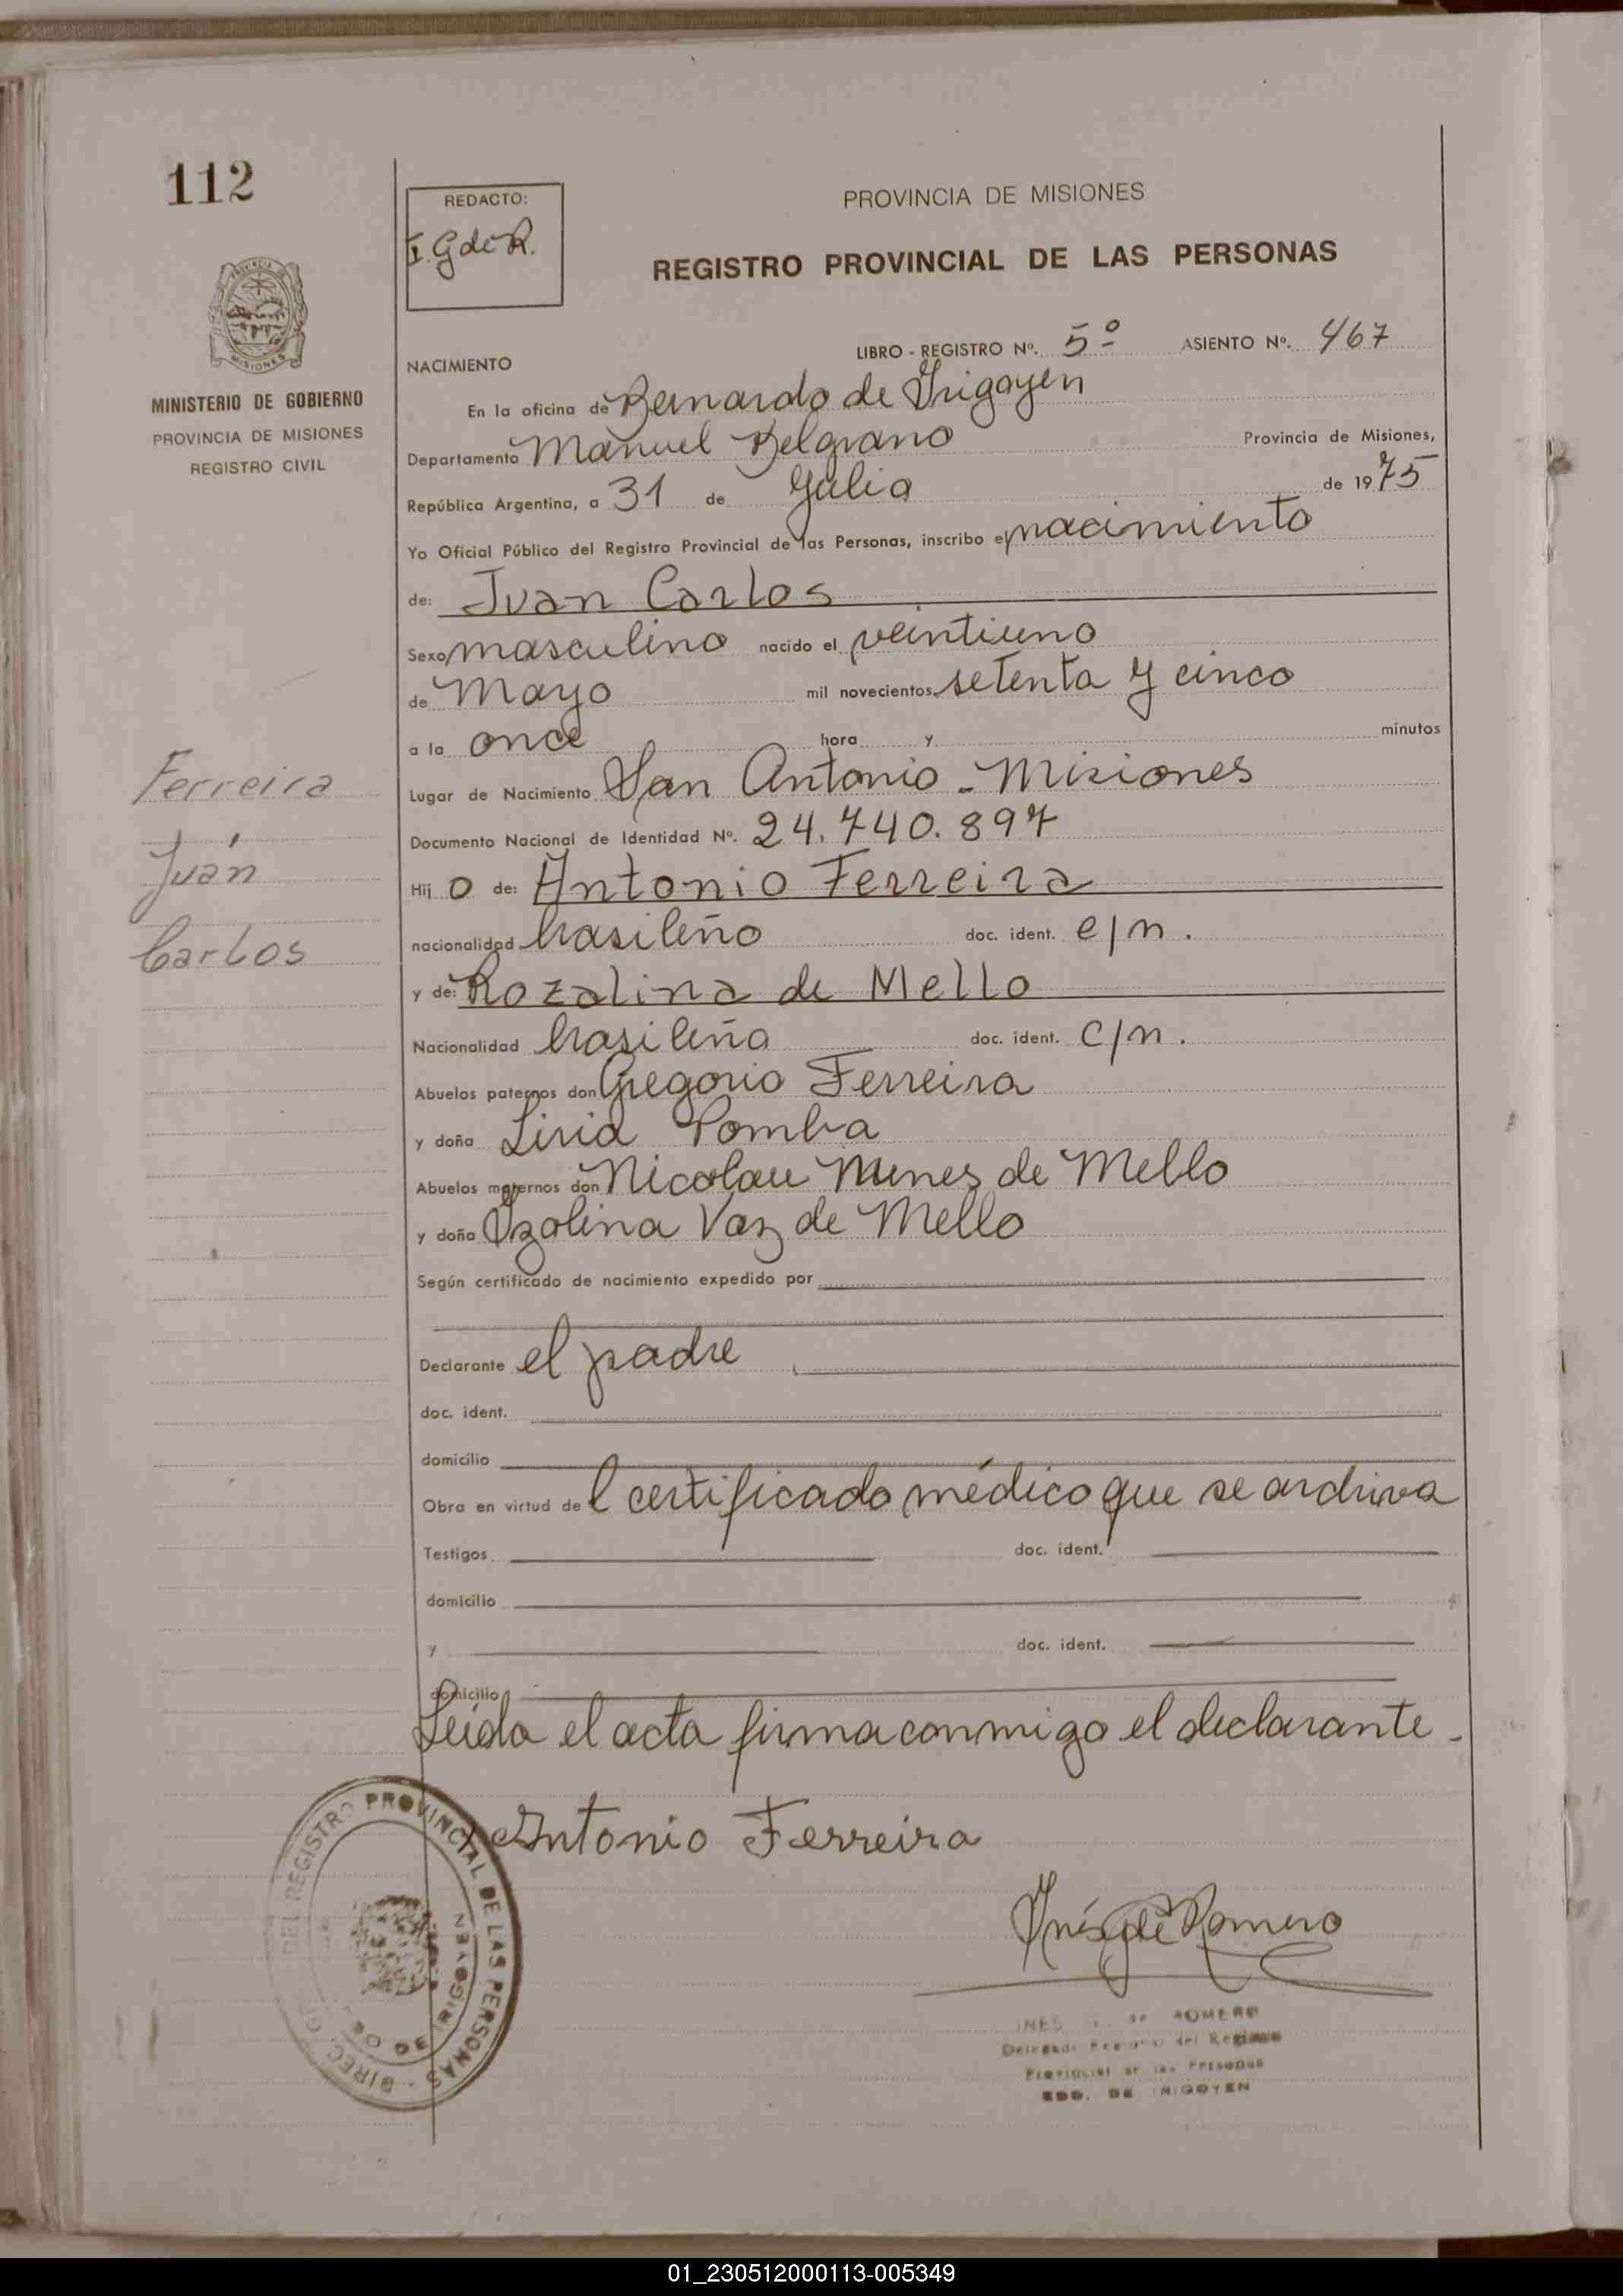 112
REDACTO:
I. G de R.
PROVINCIA DE MISIONES
REGISTRO PROVINCIAL DE LAS PERSONAS
MINISTERIO DE GOBIERNO
PROVINCIA DE MISIONES
REGISTRO CIVIL
LIBRO - REGISTRO Nº. 5º ASIENTO Nº. 467
NACIMIENTO
En la oficina de Bernardo de Irigoyen
Departamento Manuel Belgrano Provincia de Misiones,
República Argentina, a 31 de Julio de 1975
Yo Oficial Público del Registro Provincial de las Personas, inscribo el nacimiento
de: Juan Carlos
Sexo masculino nacido el veintiuno
de Mayo mil novecientos setenta y cinco
a la once hora y minutos
Lugar de Nacimiento San Antonio - Misiones
Documento Nacional de Identidad Nº. 24.740.897
Hij o de: Antonio Ferreira
nacionalidad brasileño doc. ident. c/n.
y de: Rozalina de Mello
Nacionalidad brasileña doc. ident. c/n.
Abuelos paternos don Gregorio Ferreira
y doña Liria Pomba
Abuelos maternos don Nicolau Nunes de Mello
y doña Izolina Vaz de Mello
Según certificado de nacimiento expedido por
Declarante el padre
doc. ident.
domicilio
Obra en virtud de l certificado médico que se archiva
Testigos doc. ident.
domicilio
y doc. ident.
domicilio
Leída el acta firma conmigo el declarante.
Ferreira
Juán
Carlos
Antonio Ferreira
Inés G de Romero
DEL REGISTRO PROVINCIAL DE LAS PERSONAS - DIREC
DE IRIGOYEN
INES de ROMERO
Regional del Registro
Provincial de las Personas
BDO. DE IRIGOYEN
01_230512000113-005349